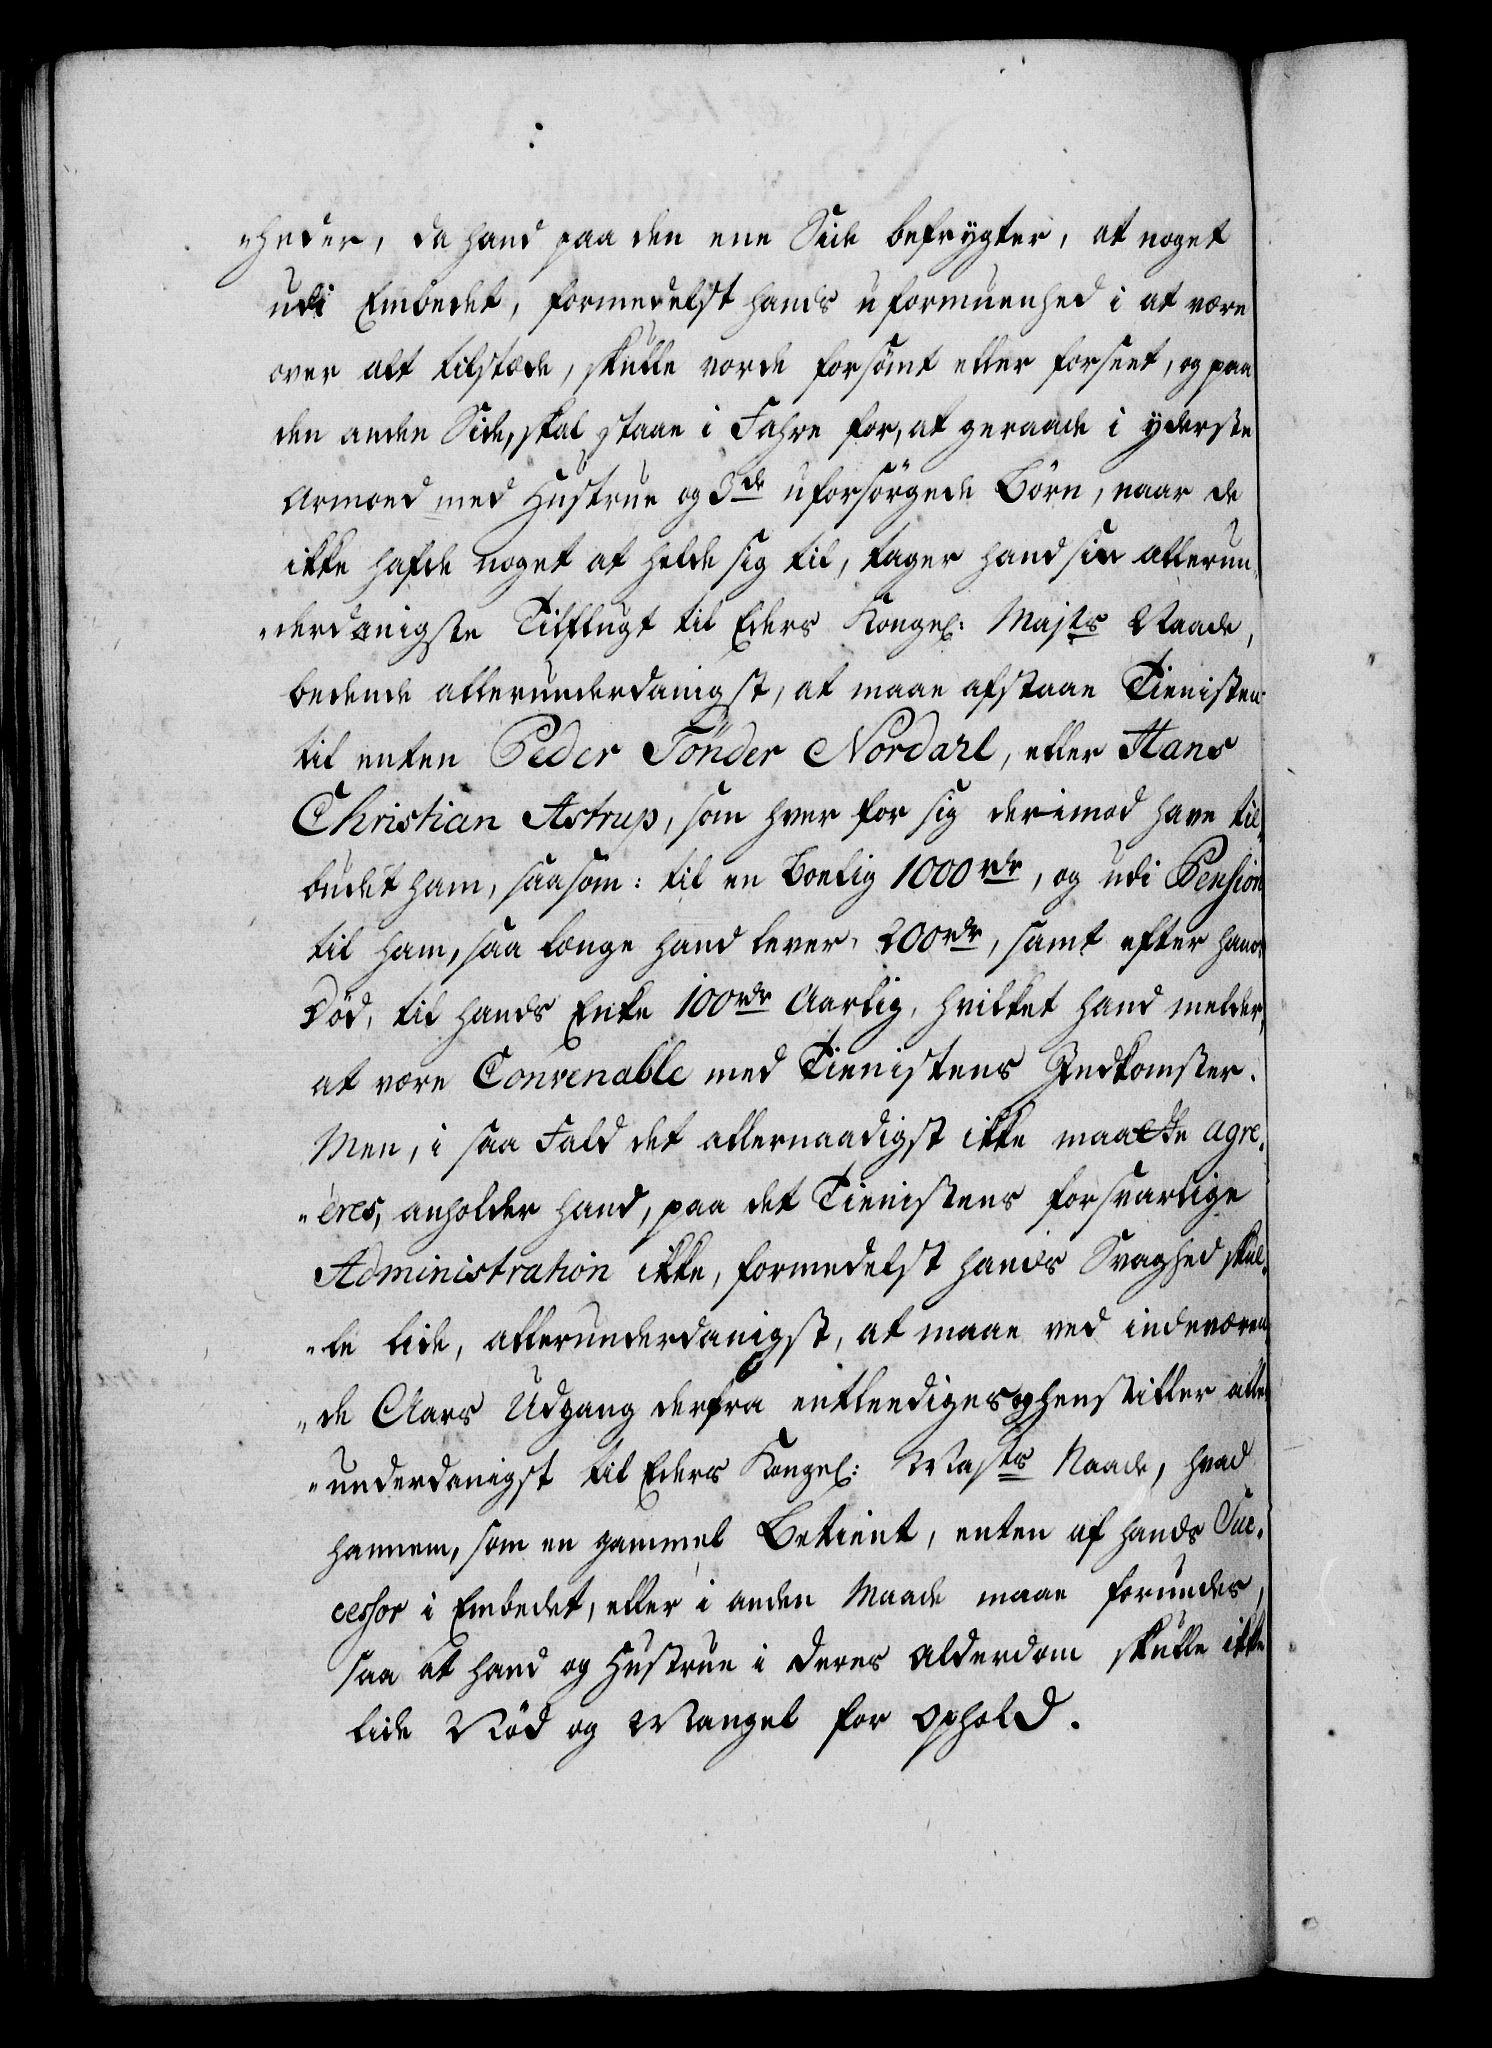 "heder, da hand paa den ene Side befrygter, at noget
udi Embedet, formedelst hands uformuenhed i at være
over alt tilstæde, skulle vorde forsömt eller forseet, og paa
den anden Side, skal staae i Fahre for, at geraade i yderste
Armoed med Hustrue og 3de uforsörgede Börn, naar de
ikke hafde noget at holde sig til, tager hand sin allerun-
"derdanigste Tilflugt til Eders Kongel: Majts Naade,
bedende allerunderdanigst, at maae afstaae Tienisten
til enten Peder Tönder Nordahl, eller Hans
Christian Astrup, som hver for sig derimod have til-
budet ham, saasom: til en Boelig 1000rdr, og udi Pension
til ham, saa længe hand lever, 200rdr, samt efter hans
Död, til hands Enke 100rdr Aarlig, hvilket hand melder,
at være Convenable med Tienistens Indkomster.
Men, i saa Fald det allernaadigst ikke maatte agre-
"eres, anholder hand, paa det Tienistens forsvarlige
Administration ikke, formedelst hands Svaghed skul-
"le lide, allerunderdanigst, at maae ved indeværen-
"de Aars Udgang derfra entleediges og henstiller aller-
"underdanigst til Eders Kongel: Majts Naade, hvad
hannem, som en gammel Betient, enten af hands Suc-
cessor i Embedet, eller i anden Maade maae forundes,
saa at hand og Hustrue i deres Alderdom skulle ikke
lide Nöd og Mangel for Ophold.